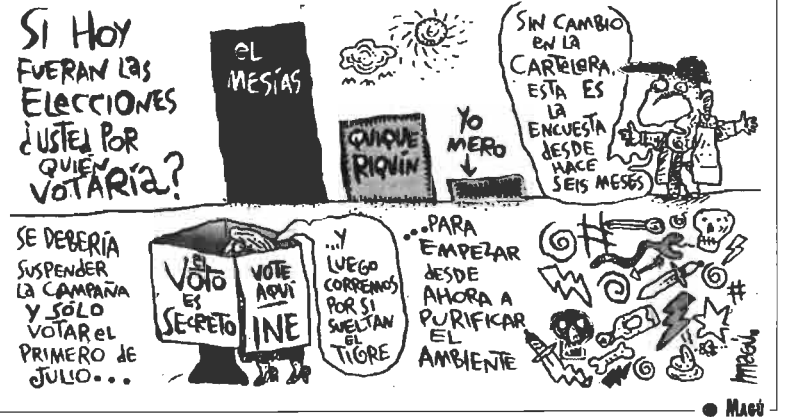 SI HOY
FUERAN LAS
ELECCIONES
¿USTED POR
QUIÉN
VOTARÍA?
EL
MESÍAS
QUIQUE
RIQUÍN
YO
MERO
SIN CAMBIO
EN LA
CARTELERA,
ESTA ES
LA
ENCUESTA
DESDE
HACE
SEIS MESES
SE DEBERÍA
SUSPENDER
LA CAMPAÑA
Y SÓLO
VOTAR EL
PRIMERO DE
JULIO...
EL
VOTO
ES
SECRETO
VOTE
AQUÍ
INE
...Y
LUEGO
CORREMOS
POR SI
SUELTAN
EL
TIGRE
...PARA
EMPEZAR
DESDE
AHORA A
PURIFICAR
EL
AMBIENTE
#
#
magú
MAGÚ